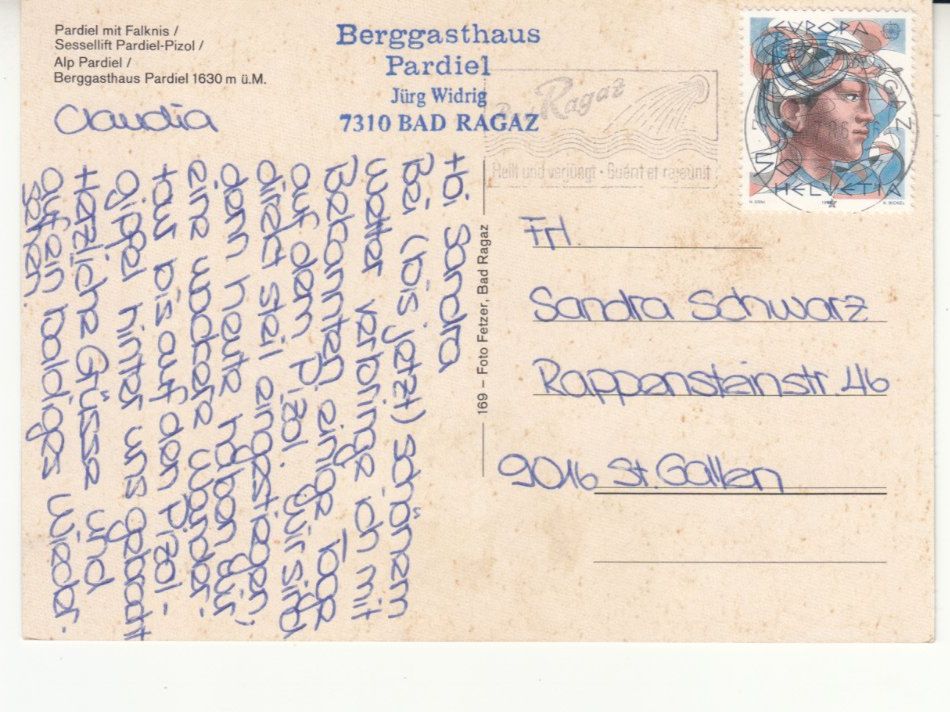 Pardiel mit Falknis /
Sessellift Pardiel-Pizol /
Alp Pardiel /
Berggasthaus Pardiel 1630 m ü.M.
Berggasthaus
Pardiel
Jürg Widrig
7310 BAD RAGAZ
Bad Ragaz
Heilt und verjüngt - Guérit et rajeunit
EUROPA
50
HELVETIA
Hoi Sandra
Bei (bis jetzt) schönem
Wetter verbringe ich mit
Bekannten einige Tage
auf dem Pizol. Wir sind
direkt steil eingestiegen,
denn heute haben wir
eine wacklere Wander-
tour bis auf den Pizol-
gipfel hinter uns gebracht
Herzliche Grüsse und
auf ein baldiges Wieder-
sehen.
Claudia
169 – Foto Fetzer, Bad Ragaz
Frl.
Sandra Schwarz
Rappensteinstr. 46
9016 St. Gallen